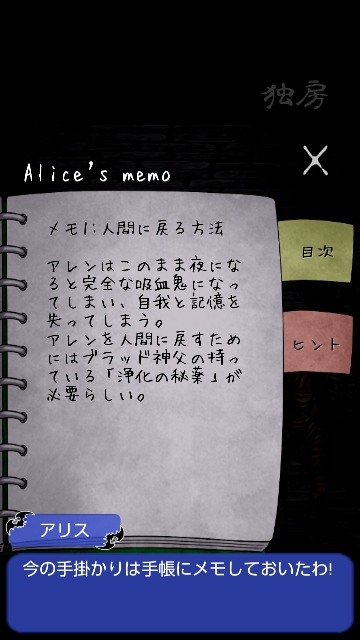 独房
Alice's memo
メモ1:人間に戻る方法
アレンはこのまま夜にな
ると完全な吸血鬼になっ
てしまい、自我と記憶を
失ってしまう。
アレンを人間に戻すため
にはブラッド神父の持っ
ている「浄化の秘薬」が
必要らしい。
目次
ヒント
アリス
今の手掛かりは手帳にメモしておいたわ!